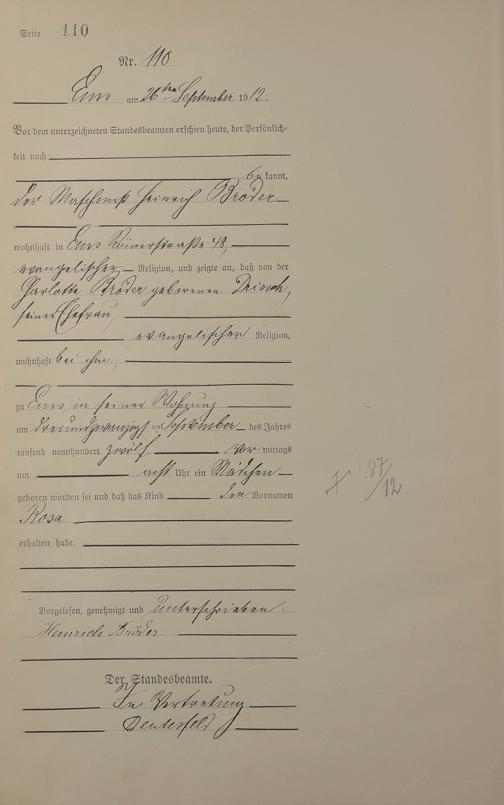 Seite 110
Nr. 110
Ems am 26ten September 1912.
Vor dem unterzeichneten Standesbeamten erschien heute, der Persönlich-
keit nach
bekannt,
der Maschinist Heinrich Bröder
wohnhaft in Ems Römerstraße 48,
evangelischer Religion, und zeigte an, daß von der
Charlotte Bröder geborenen Driesch,
seiner Ehefrau,
evangelischer Religion,
wohnhaft bei ihm,
zu Ems in seiner Wohnung
am dreiundzwanzigsten September des Jahres
tausend neunhundert zwölf vormittags
um acht Uhr ein Mädchen
geboren worden sei und daß das Kind den Vornamen
Rosa
erhalten habe.
87/12
Vorgelesen, genehmigt und unterschrieben.
Heinrich Bröder
Der Standesbeamte.
In Vertretung